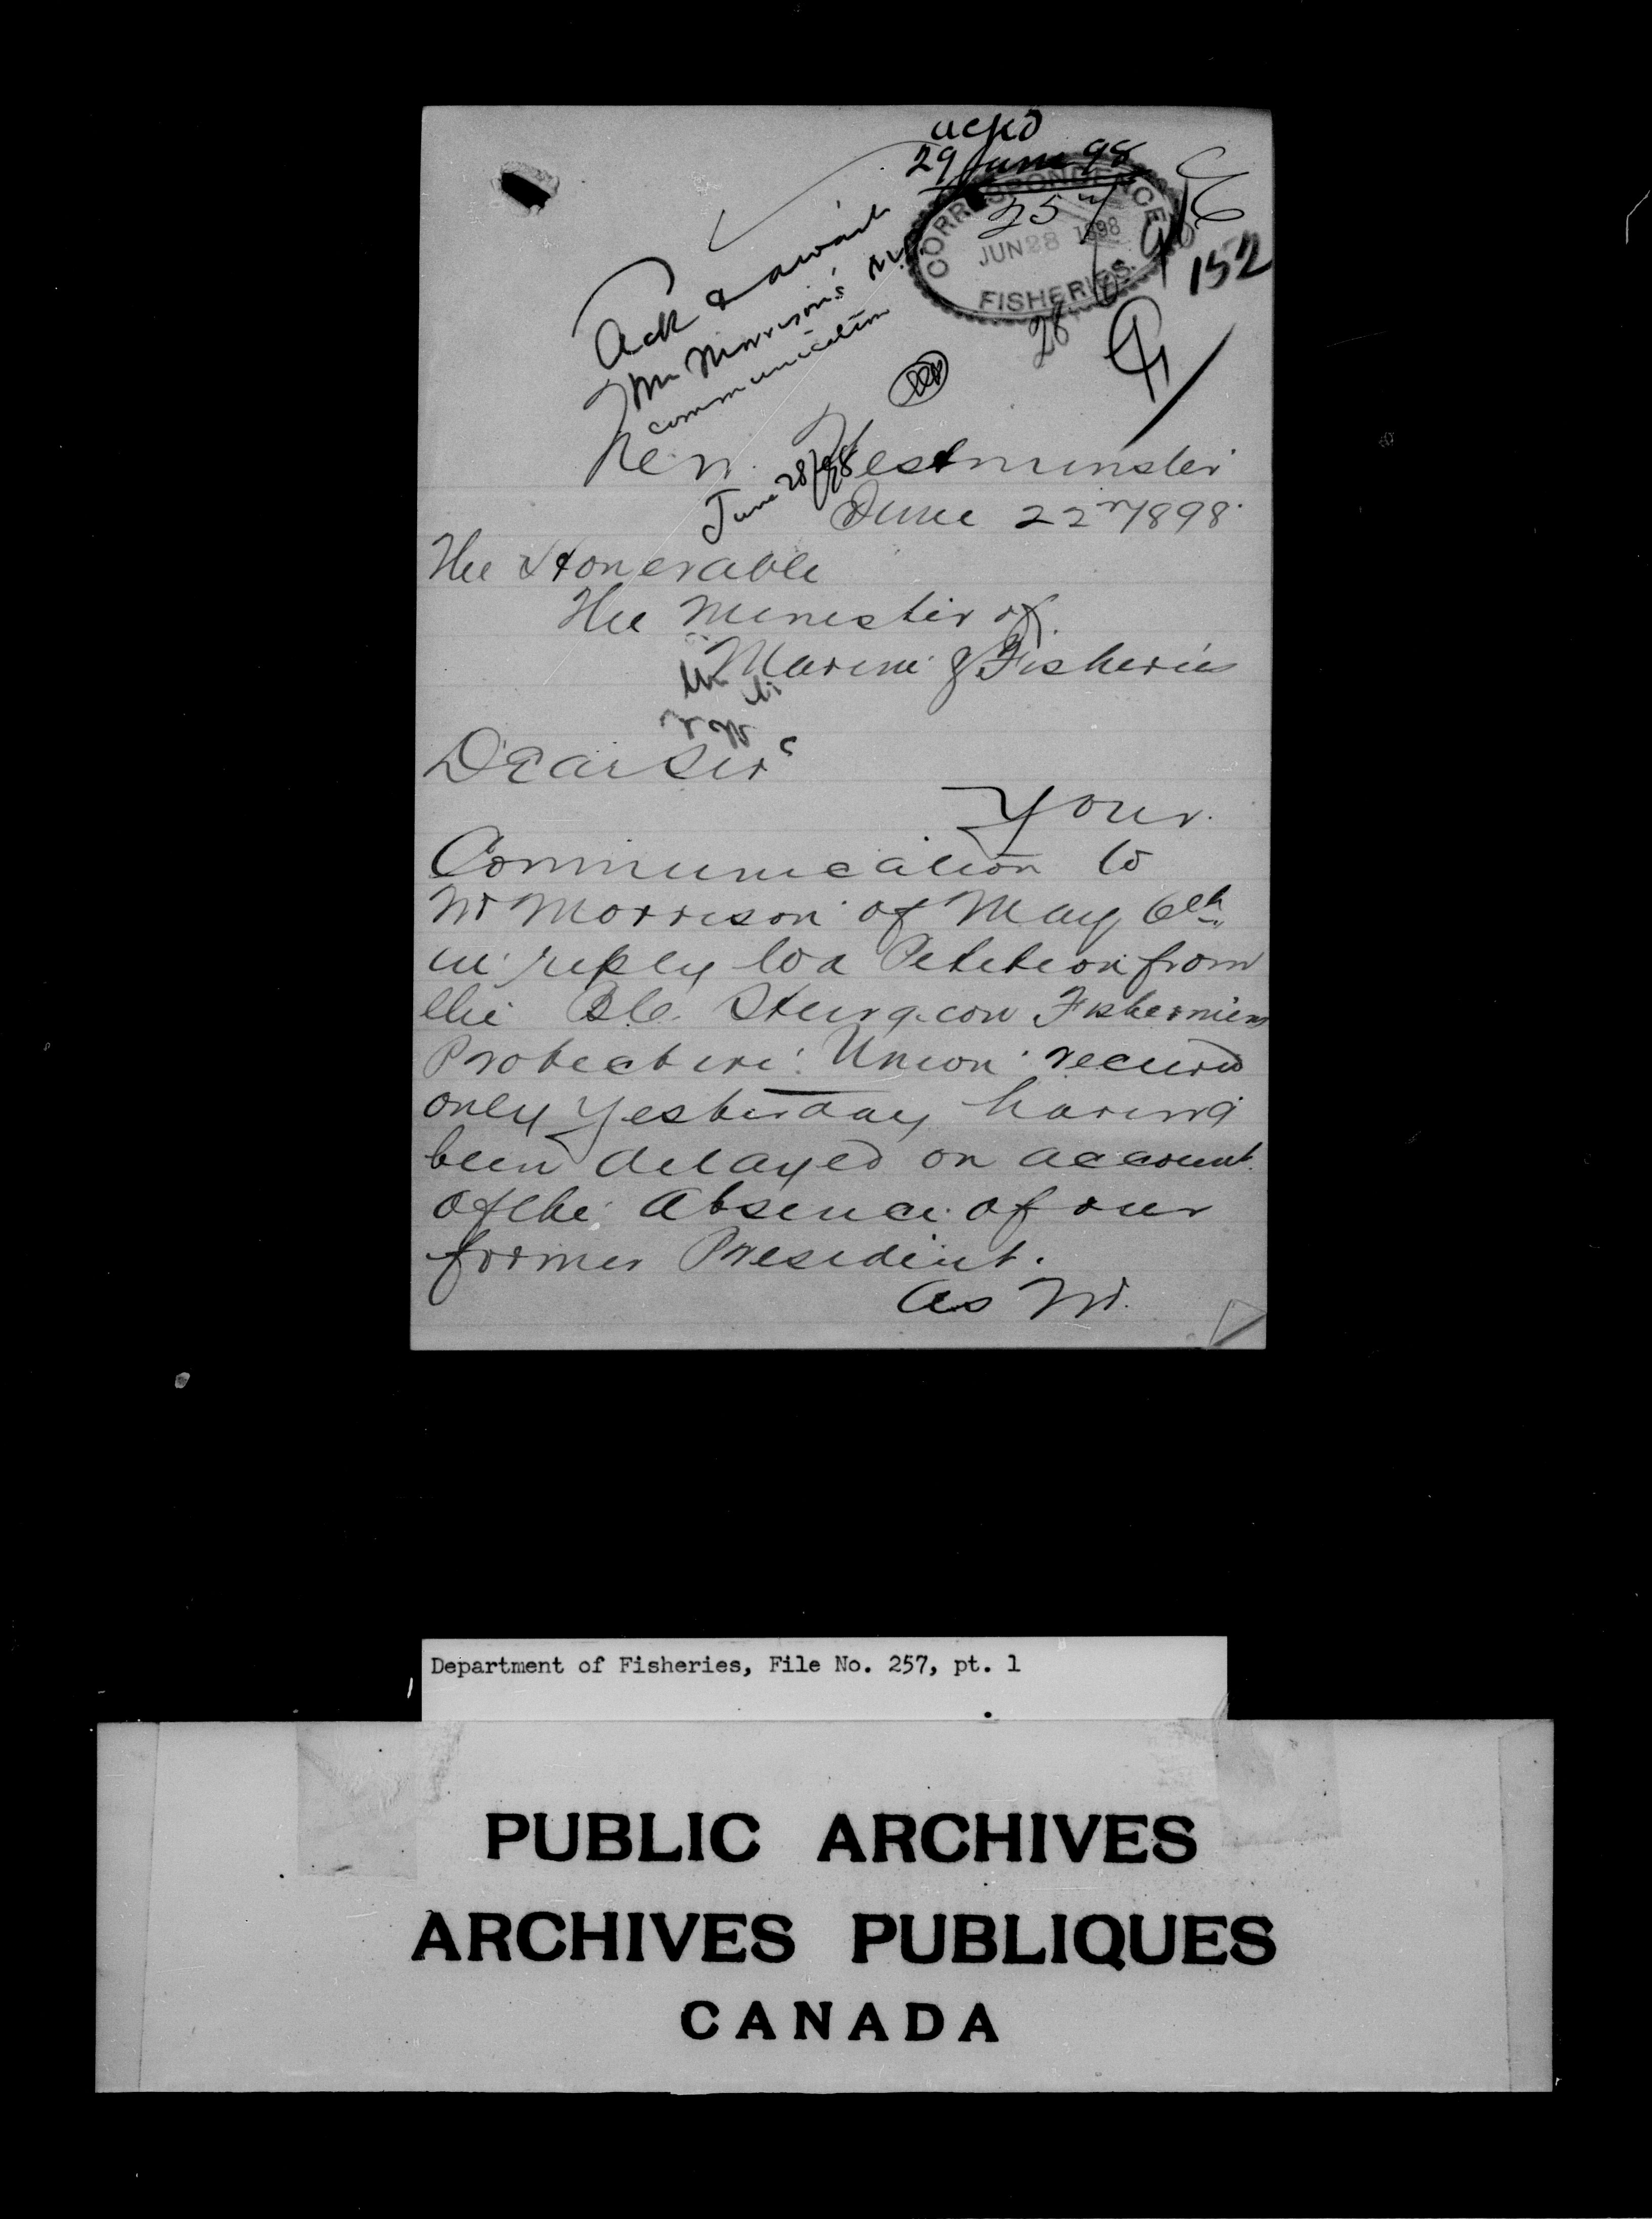 ackd
29 June 98
CORRESPONDENCE
257
JUN 28 1898
FISHERIES
152
28
Ack & await
Mr Morrison's M.P.
communication
June 28/98
New Westminster
June 22nd 1898
The Honerable
The Minester of
Marine & Fisheries
Dear Sir
Your
Communication to
Mr Morrison of May 6th
in reply to a Petetion from
the B.C. Sturgeon Fishermens
Protective Union recived
only yesterday having
been delayed on account
of the Absence of our
former President.
As Mr.
Department of Fisheries, File No. 257, pt. 1
PUBLIC ARCHIVES
ARCHIVES PUBLIQUES
CANADA